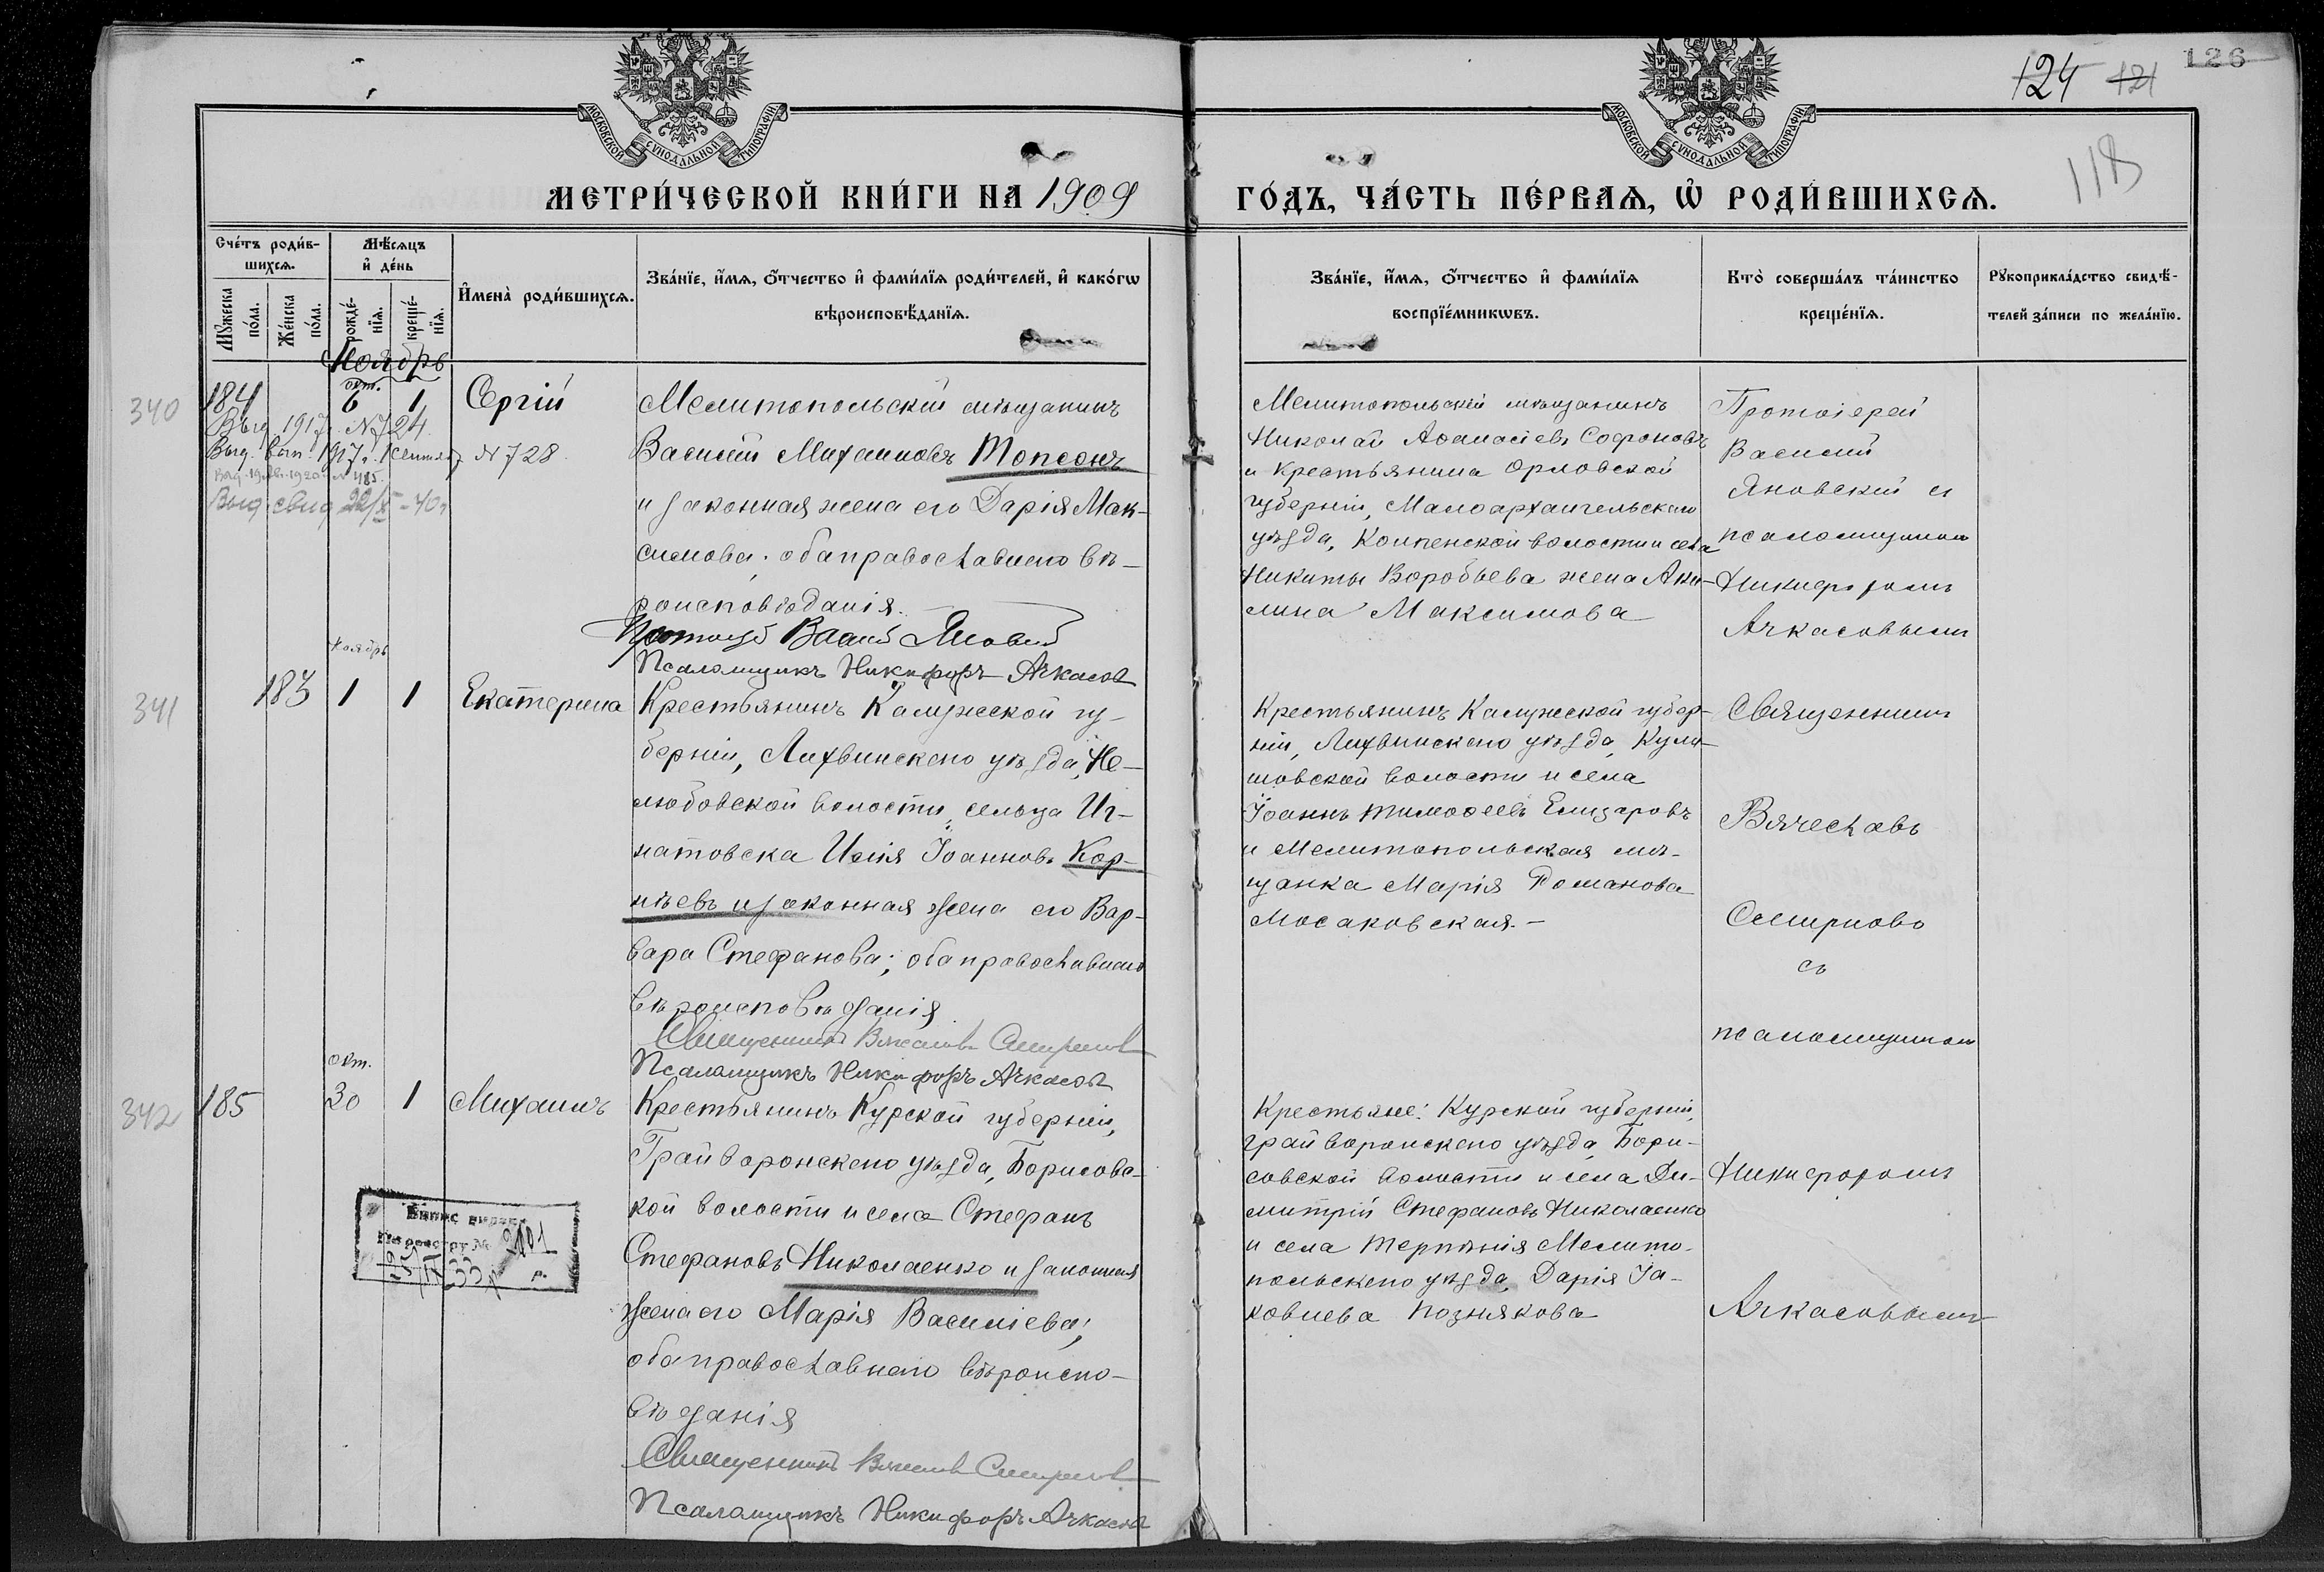 126
124 121
118
МОСКОВСКОЙ СѴНОДАЛЬНОЙ ТИПОГРАФІИ
МОСКОВСКОЙ СѴНОДАЛЬНОЙ ТИПОГРАФІИ
МЕТРИ́ЧЕСКОЙ КНИ́ГИ НА 1909
ГО́ДЪ, ЧА́СТЬ ПЕ́РВАѦ, Ѡ҆ РОДИ́ВШИХСѦ.
Сче́тъ роди́в-
шихсѧ.
Мꙋжеска по́ла.
Же́нска по́ла.
Мѣ́сѧцъ
и҆ де́нь
рожде́-
нїѧ.
креще́-
нїѧ.
И҆мена̀ роди́вшихсѧ.
Зва́нїе, и҆́мѧ, ѻ҆́тчество и҆ фами́лїѧ роди́телей, и҆ како́гѡ
вѣроисповѣ́данїѧ.
Зва́нїе, и҆́мѧ, ѻ҆́тчество и҆ фами́лїѧ
воспрїе́мникѡвъ.
Кто̀ соверша́лъ та́инство
креще́нїѧ.
Рꙋкоприкла́дство свидѣ́-
телей за́писи по жела́нїю.
Ноябрь
340
184
окт.
6 1
Сергій
Выд. 1917 N 724
Выд. вып. 1917 г. 1 сентяб N 728
1920 N 485
Выд. свид 22/X - 40 г
Мелитопольскій мѣщанинъ
Василій Михаиловъ Топсонъ
и законная жена его Дарія Мак-
симова; оба православнаго вѣ-
роисповѣданія.
Протоіерей Василій Яновскій
Псаломщикъ Никифоръ Ачкасовъ
Мелитопольскій мѣщанинъ
Николай Аѳанасіевъ Софоновъ
и крестьянина Орловской
губерніи, Малоархангельскаго
уѣзда, Колпенской волости и села
Никиты Воробьева жена Аки-
лина Максимова
Протоіерей
Василій
Яновскій съ
псаломщикомъ
Никифоромъ
Ачкасовымъ
341
183
Ноябрь
1 1
Екатерина
Крестьянинъ Калужской гу-
берніи, Лихвинскаго уѣзда, Не-
любовской волости, сельца Иг-
натовска Илія Іоанновъ Кор-
нѣевъ и законная жена его Вар-
вара Стефанова; оба православнаго
вѣроисповѣданія
Священникъ Вячеславъ Смирновъ
Псаломщикъ Никифоръ Ачкасовъ
Крестьянинъ Калужской губер-
ніи, Лихвинскаго уѣзда, Куле-
шовской волости и села
Іоаннъ Тимоѳеевъ Елизаровъ
и Мелитопольская мѣ-
щанка Марія Романова
Мосаковская.-
Священникъ
Вячеславъ
Смирновъ
съ
псаломщикомъ
342
185
окт.
30 1
Михаилъ
Крестьянинъ Курской губерніи,
Грайворонскаго уѣзда, Борисовс-
кой волости и села Стефанъ
Стефановъ Николаенко и законная
жена его Марія Василіева;
оба православнаго вѣроиспо-
вѣданія
Священникъ Вячеславъ Смирновъ
Псаломщикъ Никифоръ Ачкасовъ
По реєстру № 2101
33 р.
Крестьяне: Курской губерніи,
Грайворонскаго уѣзда, Бори-
совской волости и села Ди-
митрій Стефановъ Николаенко
и села Терпѣнія Мелито-
польскаго уѣзда, Дарія Іа-
ковлева Познякова
Никифоромъ
Ачкасовымъ